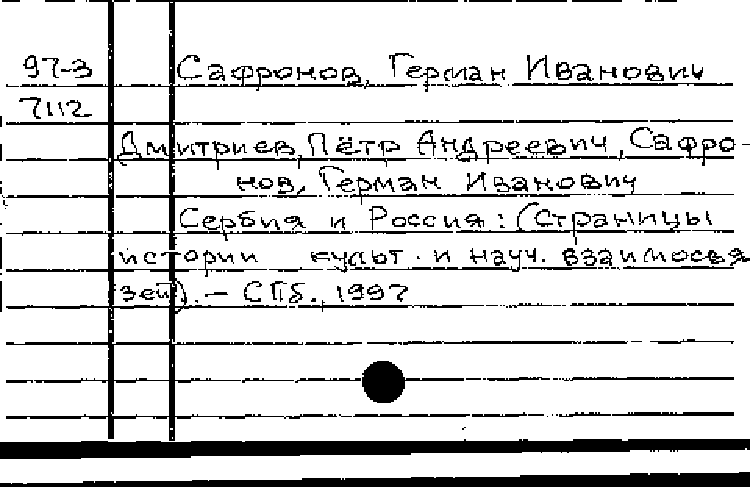 97-3 Сафронов, Герман Иванович
7112
Дмитриев, Пётр Андреевич, Сафро-
нов, Герман Иванович
Сербия и Россия: (Страницы
истории культ. и науч. взаимосвя
зей). - СПб., 1997